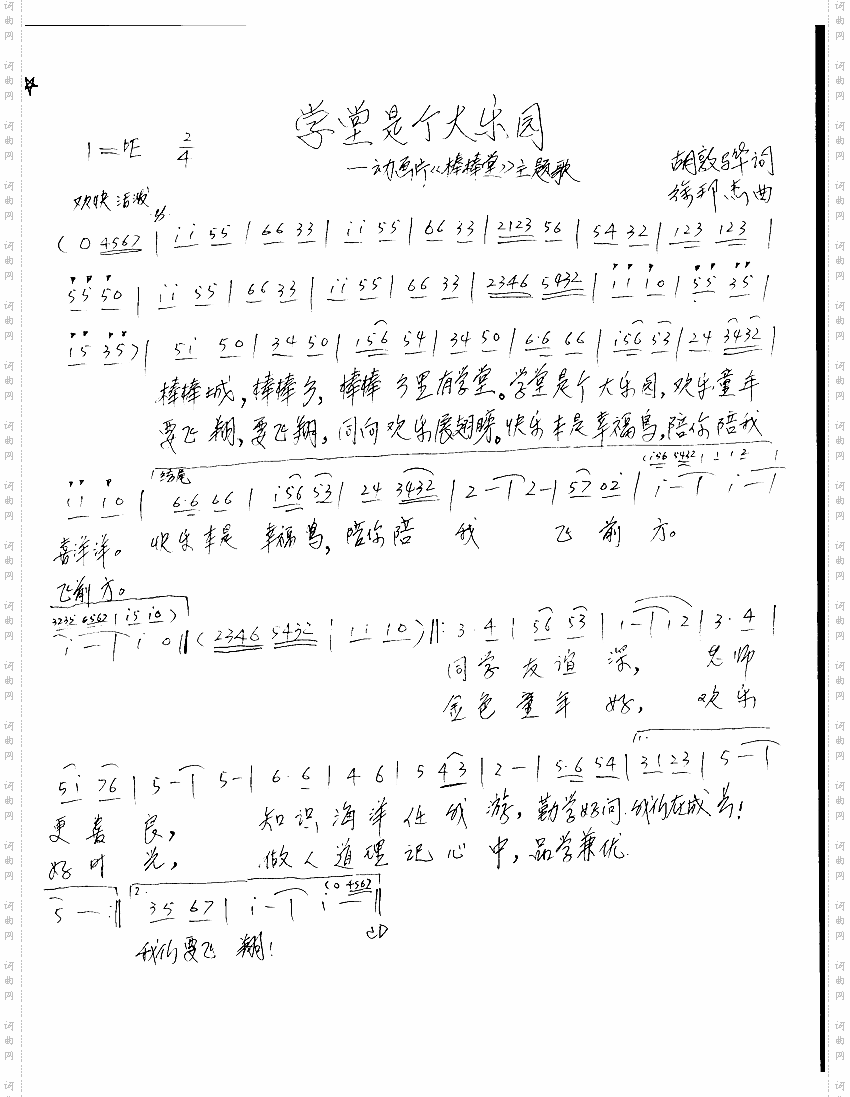 学堂是个大乐园
1=bE 2/4
——动画片《棒棒堂》主题歌
胡敦骅词
徐邦杰曲
欢快活泼
(0 4567 | i i 55 | 66 33 | i i 55 | 66 33 | 2123 56 | 54 32 | 123 123 |
55 50 | i i 55 | 66 33 | i i 55 | 66 33 | 2346 5432 | i i i 0 | 55 35 |
i5 35) | 5i 50 | 34 50 | i56 54 | 34 50 | 6·6 66 | i56 53 | 24 3432 |
棒棒城，棒棒乡，棒棒乡里有学堂。学堂是个大乐园，欢乐童年
要飞翔，要飞翔，同向欢乐展翅膀。快乐本是幸福鸟，陪你陪我
(i56 5432 | i i 2 |
结尾
11 10 | 6·6 66 | i56 53 | 24 3432 | 2 - | 2 - | 57 02 | i - | i -
喜洋洋。 快乐本是 幸福鸟，陪你陪 我 飞 前 方。
飞前方。
3235 6562 | i5 i0)
i - | i 0 || (2346 5432 | 1i 10) ||: 3·4 | 56 53 | i - | i 2 | 3·4 |
同学友谊深， 老师
金色童年好， 欢乐
1.
5i 76 | 5 - | 5 - | 6·6 | 4 6 | 5 43 | 2 - | 5·6 54 | 3123 | 5 - |
更善良， 知识海洋任我游，勤学好问 我们在成长！
好时光， 做人道理记心中，品学兼优
2. (0 4567
5 - :|| 35 67 | i - | i ||
我们要飞翔！
词曲网